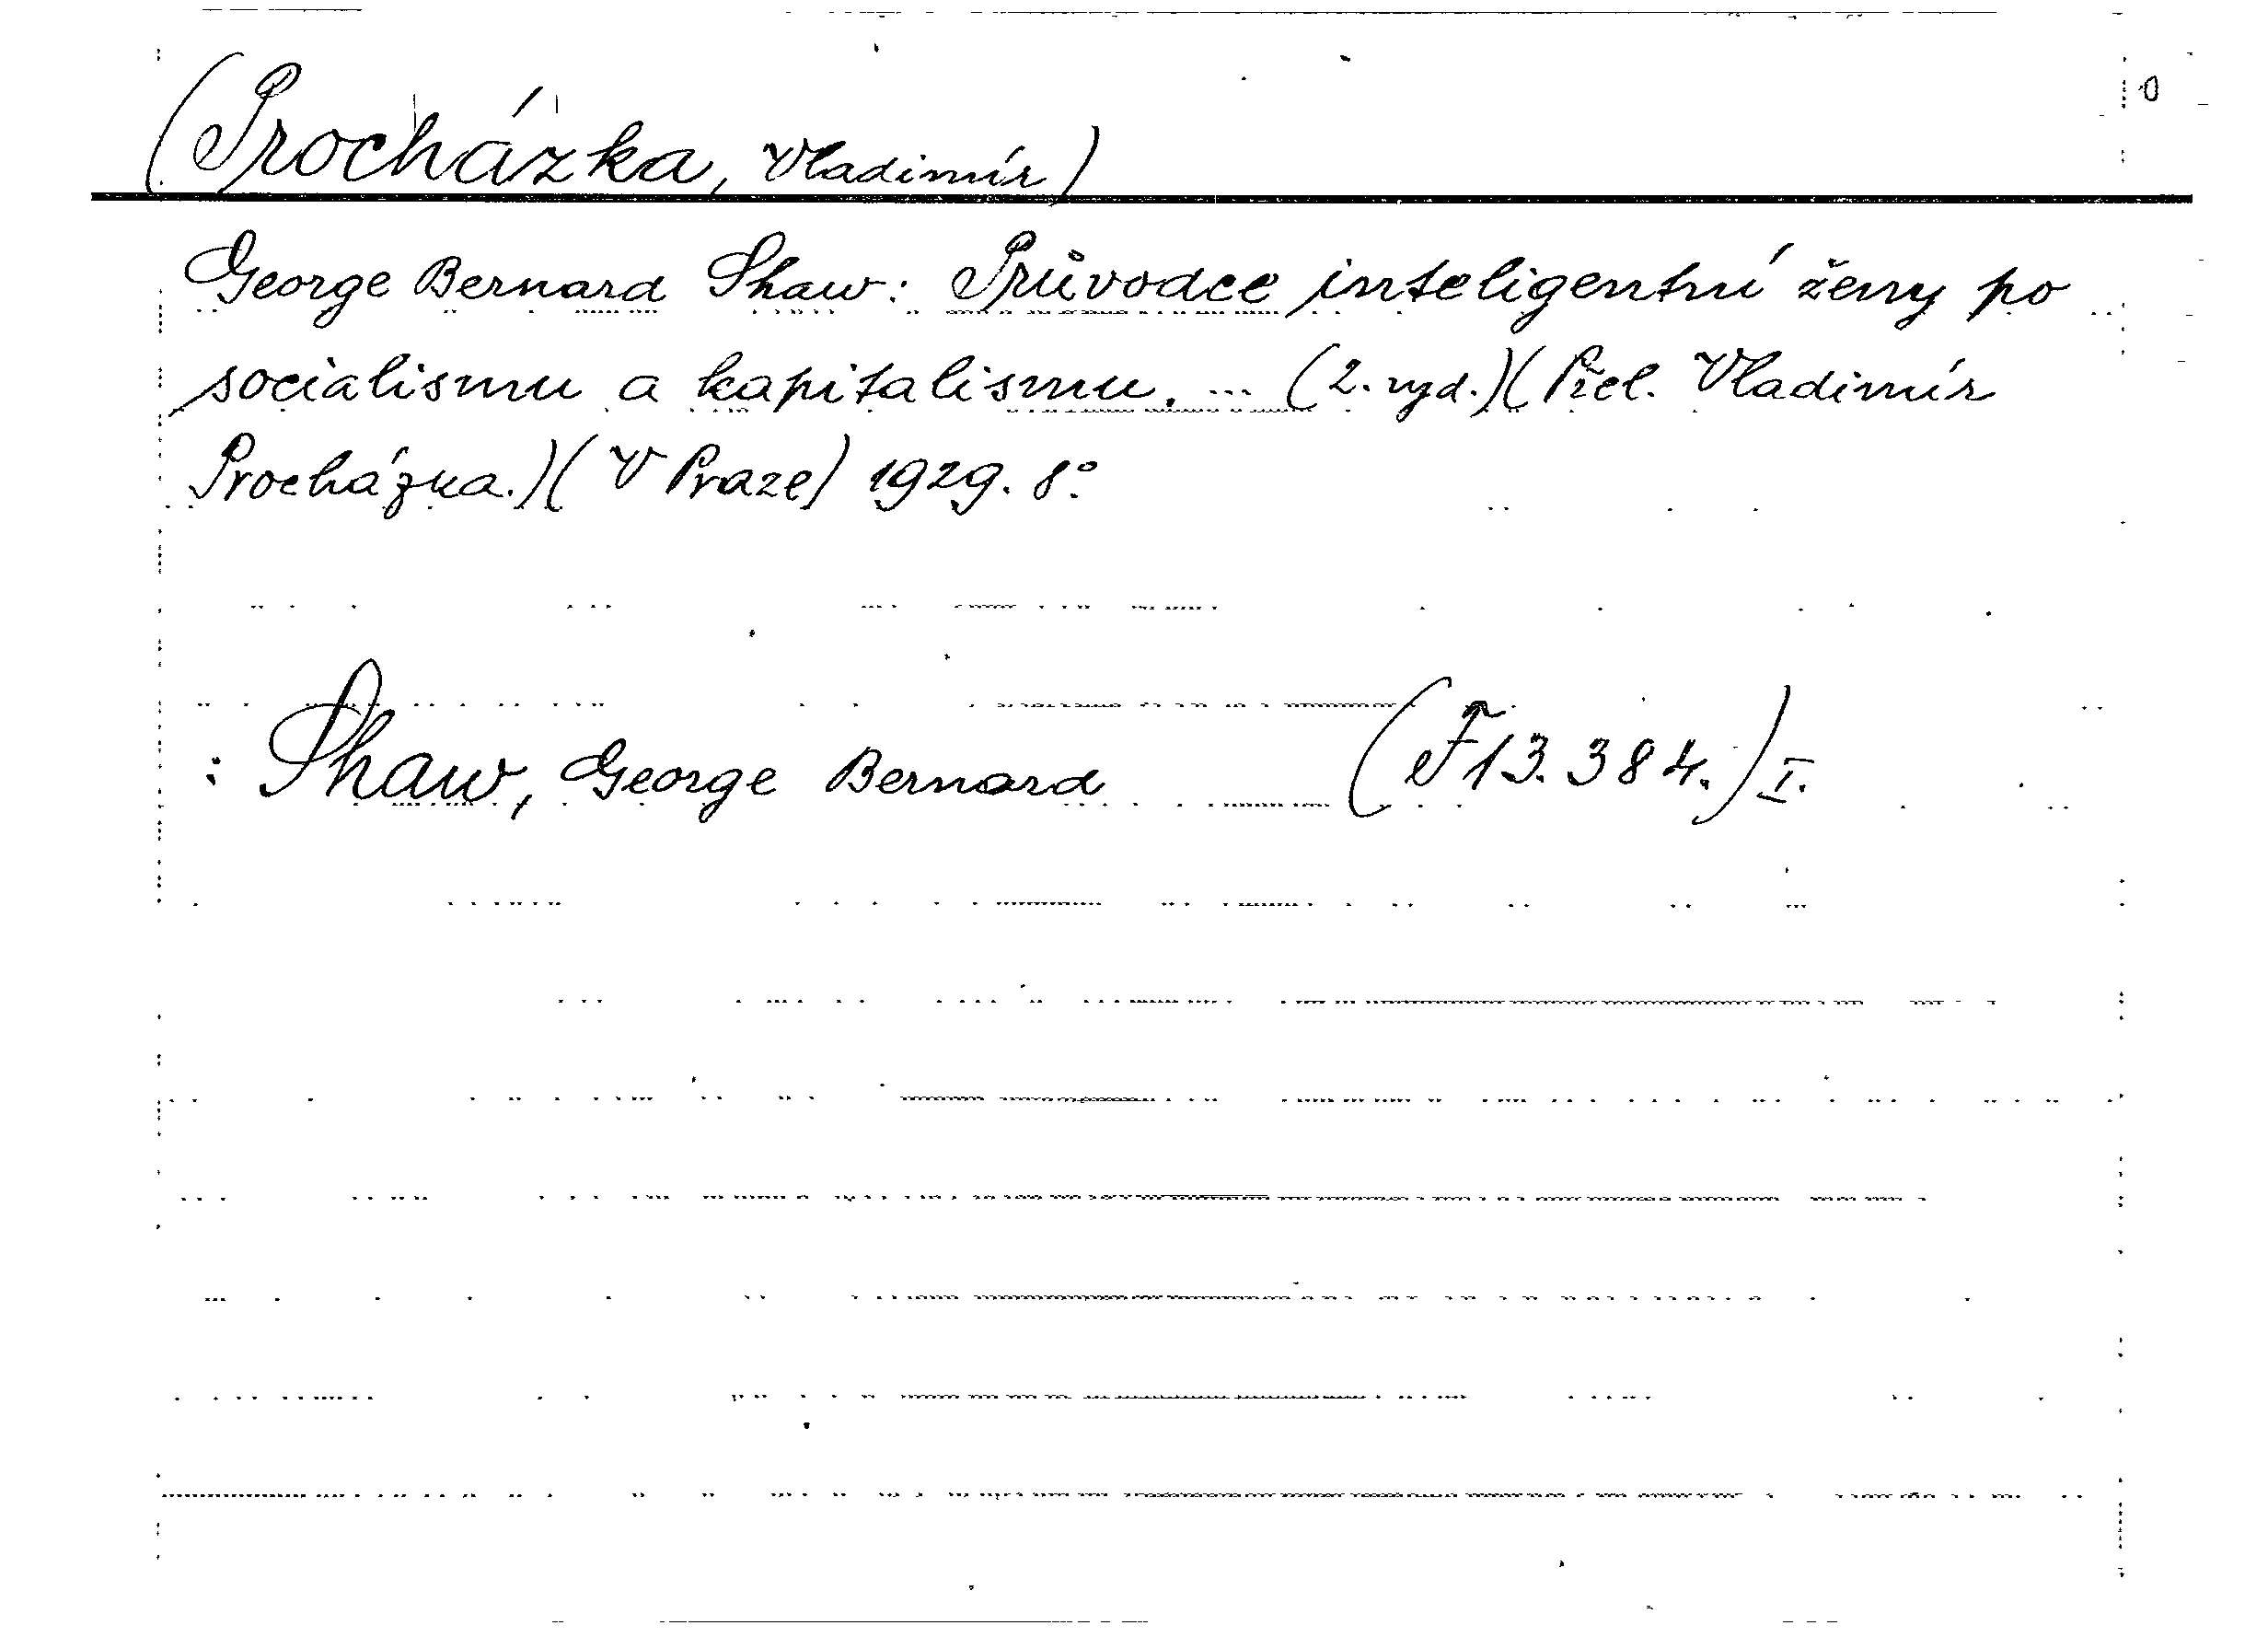 (Procházka, Vladimír)
George Bernard Shaw: Průvodce inteligentní ženy po
socialismu a kapitalismu. ... (2. vyd.)(Přel. Vladimír
Procházka.)(V Praze) 1929. 8°.
: Shaw, George Bernard (F 13.384.) I.